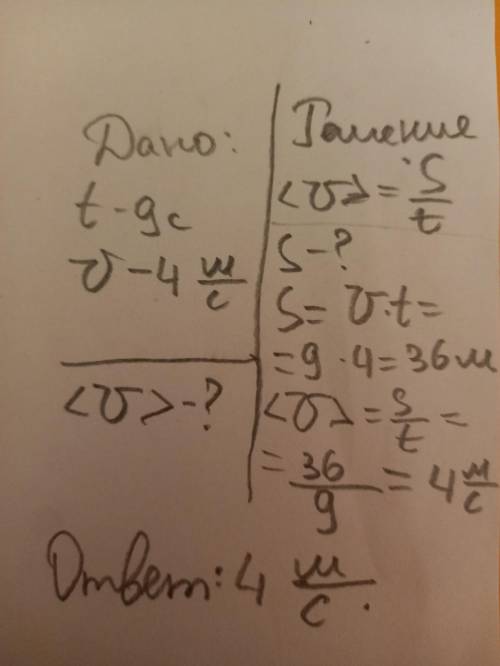 Дано:
t - 9c
υ - 4 м/с
<υ> - ?
Решение
<υ> = S/t
S - ?
S = υ·t =
= 9 · 4 = 36 м
<υ> = S/t =
= 36/9 = 4 м/с
Ответ: 4 м/с.